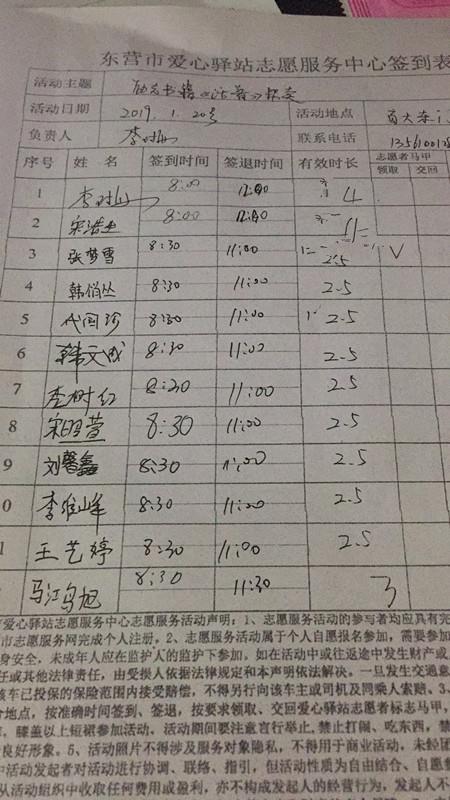 东营市爱心驿站志愿服务中心签到表
活动主题
活动日期 2019.1.20号 活动地点
负责人 李树山 联系电话 1356100
序号 姓 名 签到时间 签退时间 有效时长 志愿者马甲
领取 交回
1 李树山 8:00 12:00 4
2 宋浩 8:00 12:00
3 张梦雪 8:30 11:00 2.5 V
4 韩俏丛 8:30 11:00 2.5
5 代国珍 8:30 11:00 2.5
6 韩文成 8:30 11:00 2.5
7 李树红 8:30 11:00 2.5
8 宋明萱 8:30 11:00 2.5
9 刘馨鑫 8:30 11:00 2.5
0 李维峰 8:30 11:00 2.5
1 王艺婷 8:30 11:00 2.5
马江乌旭 8:30 11:30 3
爱心驿站志愿服务中心志愿服务活动声明：1、志愿服务活动的参与者均应具有完
市志愿服务网完成个人注册，2、志愿服务活动属于个人自愿报名参加，需要参加
身安全，未成年人应在监护人的监护下参加，如在活动中或往返途中发生财产或
任或其他法律责任，由受损人依据法律规定和本声明依法解决。一旦发生交通意
该车已投保的保险范围内接受赔偿，不得另行向该车主或司机及同乘人索赔、3、
合地点，按准确时间签到、签退，按要求领取、交回爱心驿站志愿者标志马甲，
，膝盖以上短裙参加活动，活动期间要注意言行举止，禁止打闹、吃东西，禁
良好形象。5、活动照片不得涉及服务对象隐私，不得用于商业活动，未经团
中活动发起者对活动进行协调、联络、指引，但活动性质为自由结合、自愿参
从活动组织中收取任何费用或盈利，亦不构成发起人的经营行为，发起人不